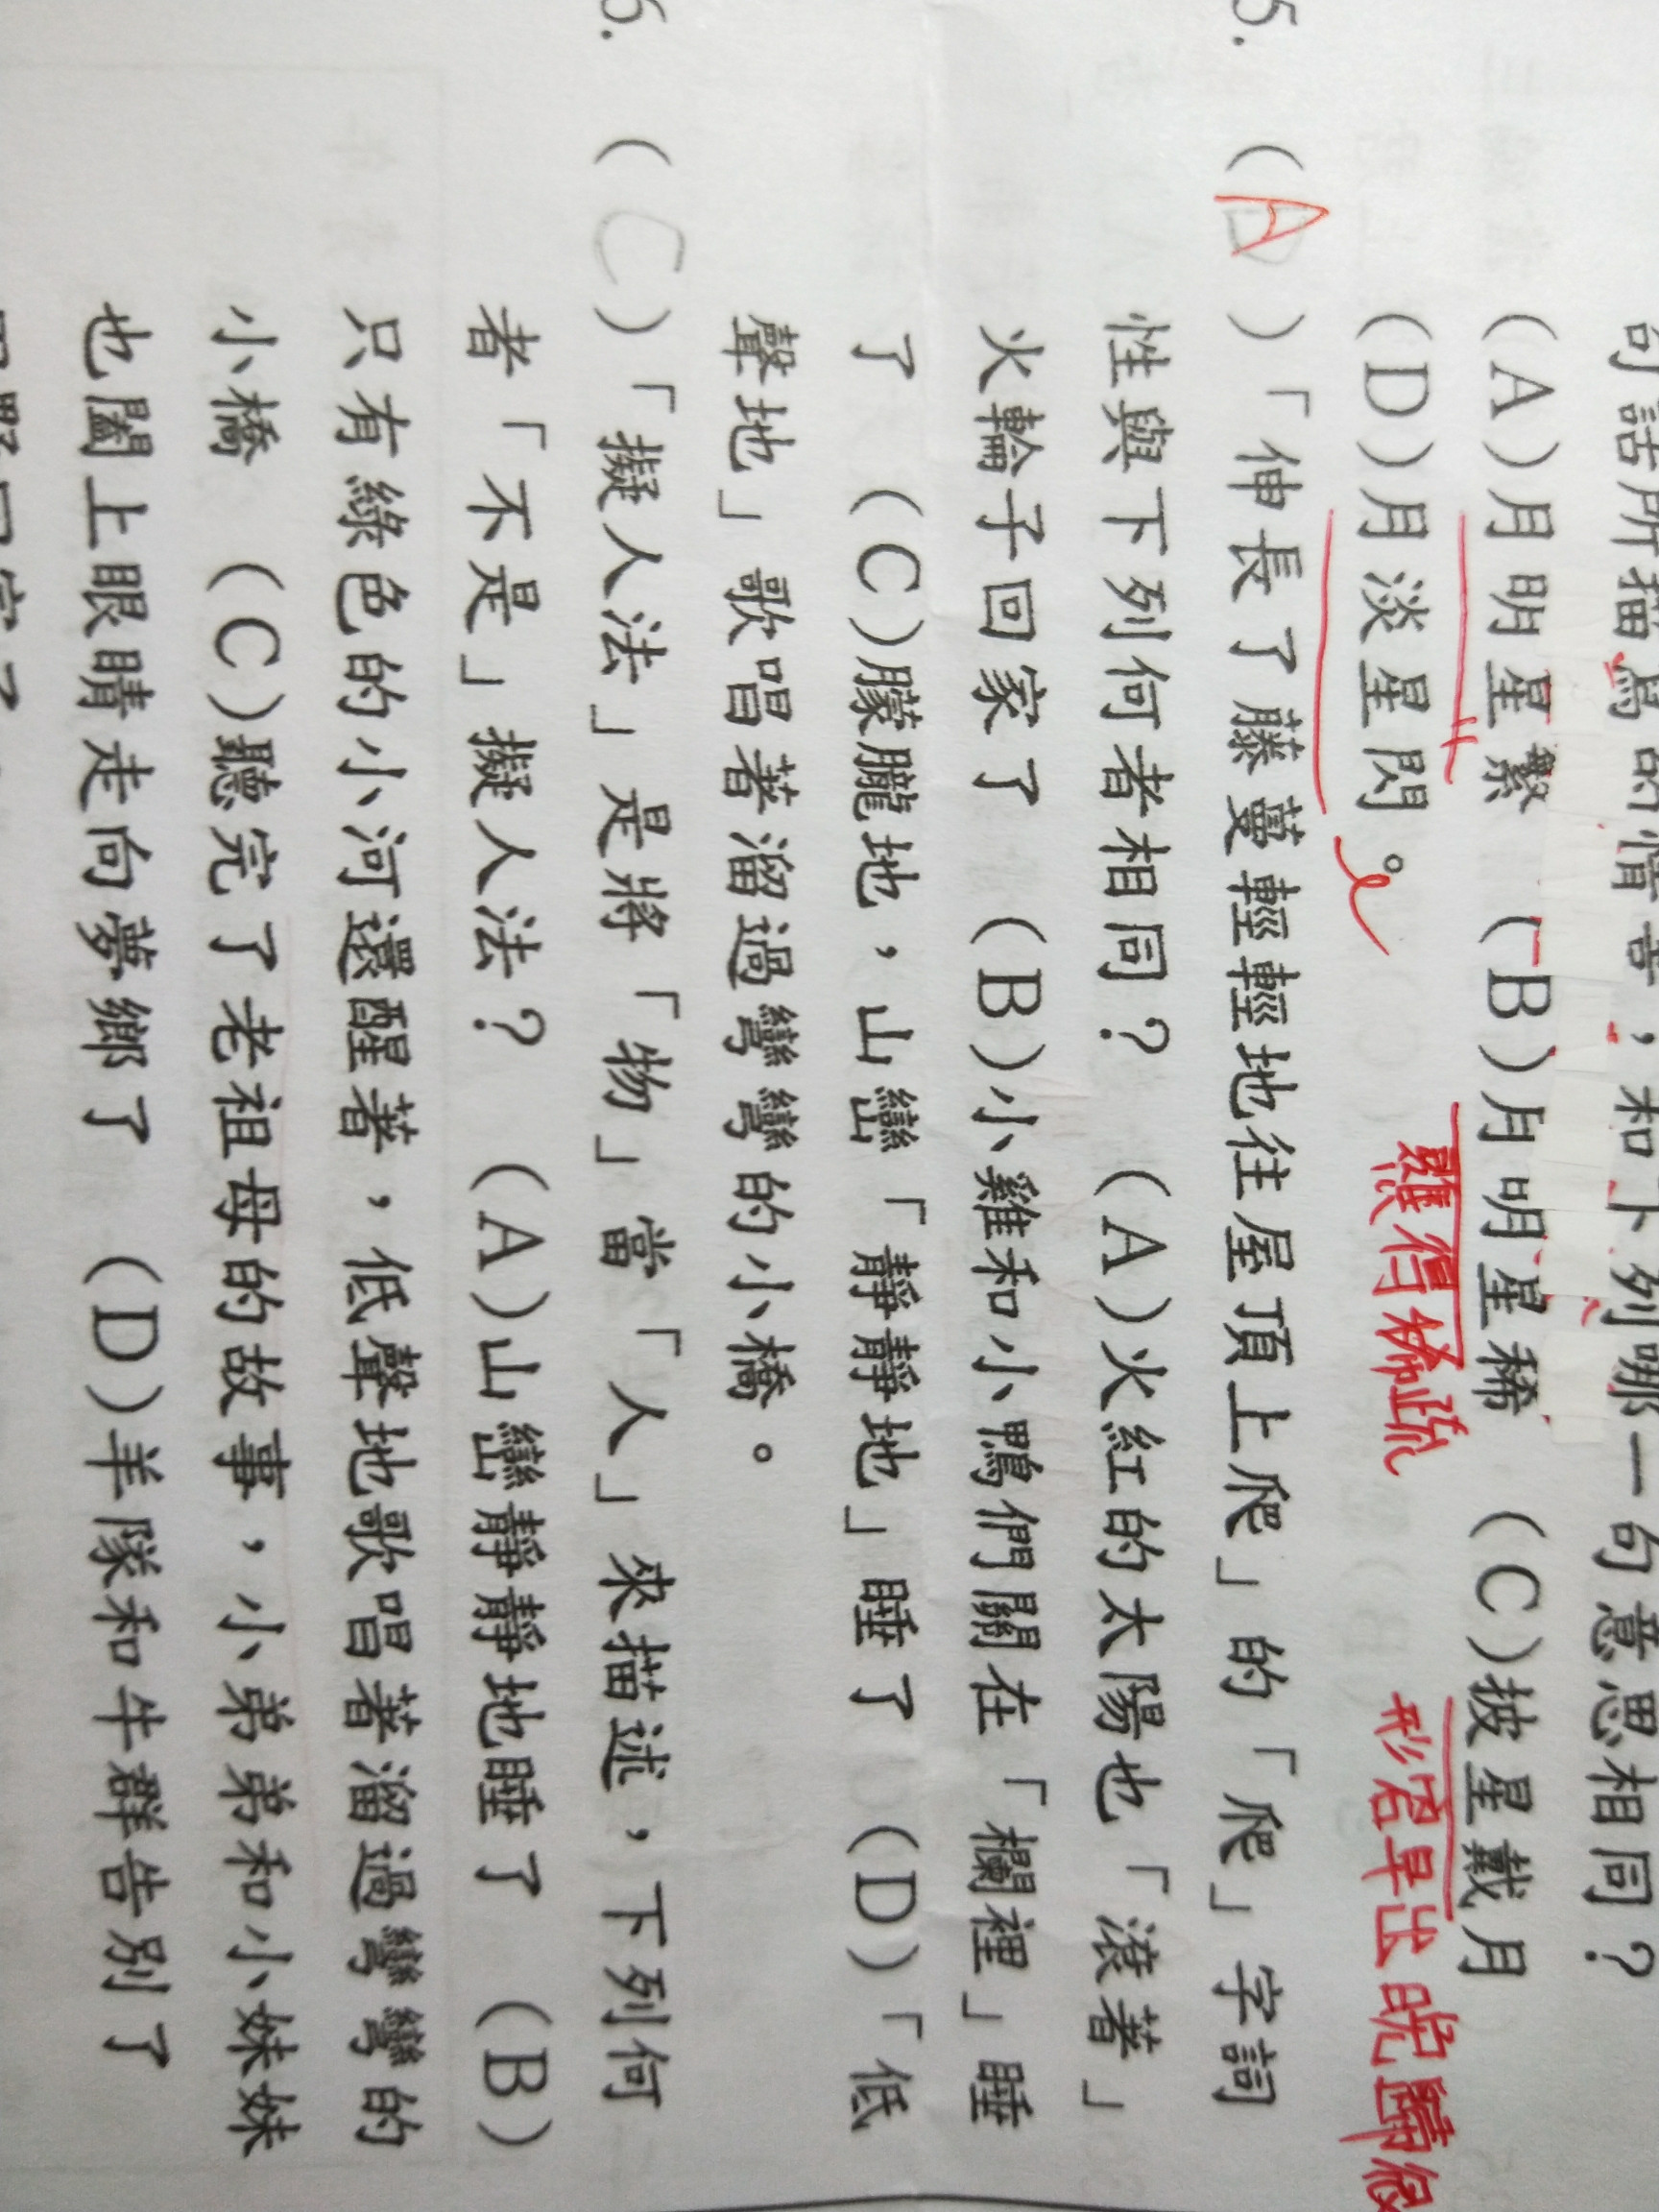 句話所描寫的情，和下列哪一句意思相同？
(A)月明星繁 (B)月明星稀 (C)披星戴月
(D)月淡星閃。
得稀疏 形容早出晚歸
5. (A)「伸長了藤蔓輕輕地往屋頂上爬」的「爬」字詞
性與下列何者相同？ (A)火紅的太陽也「滾著」
火輪子回家了 (B)小雞和小鴨們關在「欄裡」睡
了 (C)朦朧地，山巒「靜靜地」睡了 (D)「低
聲地」歌唱著溜過彎彎的小橋。
6. (C)「擬人法」是將「物」當「人」來描述，下列何
者「不是」擬人法？ (A)山巒靜靜地睡了 (B)
只有綠色的小河還醒著，低聲地歌唱著溜過彎彎的
小橋 (C)聽完了老祖母的故事，小弟弟和小妹妹
也闔上眼睛走向夢鄉了 (D)羊隊和牛群告別了